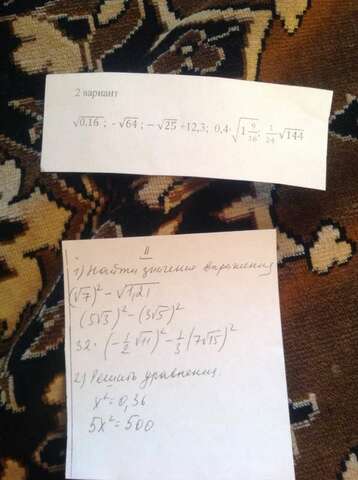 2 вариант
√0,16 ; -√64 ; -√25 +12,3; 0,4·√1 9/16; 1/24 √144
II
1) Найти значение выражения
(√7)² - √1,21
(5√3)² - (3√5)²
32·(-1/2 √11)² - 1/3 (7√15)²
2) Решить уравнения.
x² = 0,36
5x² = 500